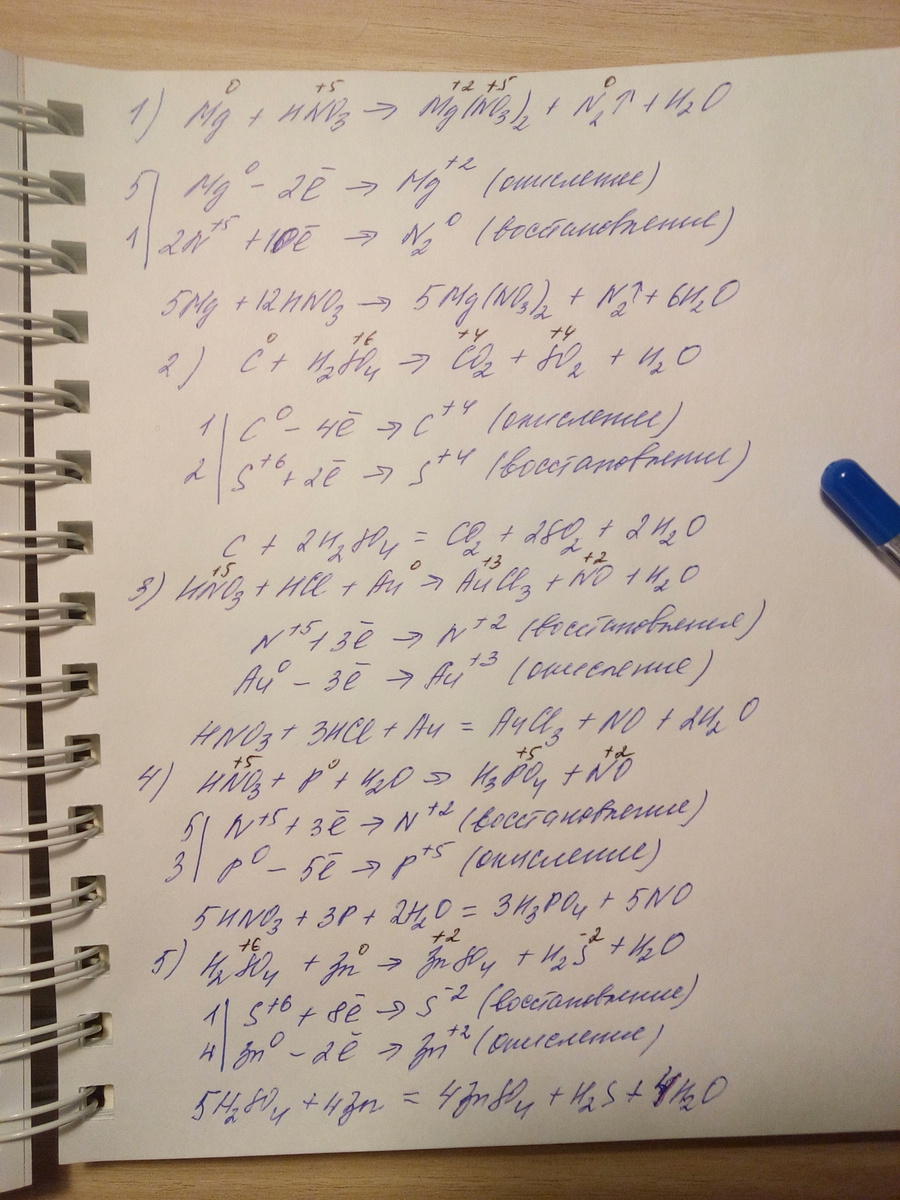 1) Mg⁰ + HN⁺⁵O₃ → Mg⁺²(N⁺⁵O₃)₂ + N₂⁰↑ + H₂O
5 | Mg⁰ - 2ē → Mg⁺² (окисление)
1 | 2N⁺⁵ + 10ē → N₂⁰ (восстановление)
5Mg + 12HNO₃ → 5Mg(NO₃)₂ + N₂↑ + 6H₂O
2) C⁰ + H₂S⁺⁶O₄ → C⁺⁴O₂ + S⁺⁴O₂ + H₂O
1 | C⁰ - 4ē → C⁺⁴ (окисление)
2 | S⁺⁶ + 2ē → S⁺⁴ (восстановление)
C + 2H₂SO₄ = CO₂ + 2SO₂ + 2H₂O
3) HN⁺⁵O₃ + HCl + Au⁰ → Au⁺³Cl₃ + N⁺²O + H₂O
N⁺⁵ + 3ē → N⁺² (восстановление)
Au⁰ - 3ē → Au⁺³ (окисление)
HNO₃ + 3HCl + Au = AuCl₃ + NO + 2H₂O
4) HN⁺⁵O₃ + P⁰ + H₂O → H₃P⁺⁵O₄ + N⁺²O
5 | N⁺⁵ + 3ē → N⁺² (восстановление)
3 | P⁰ - 5ē → P⁺⁵ (окисление)
5HNO₃ + 3P + 2H₂O = 3H₃PO₄ + 5NO
5) H₂S⁺⁶O₄ + Zn⁰ → Zn⁺²SO₄ + H₂S⁻² + H₂O
1 | S⁺⁶ + 8ē → S⁻² (восстановление)
4 | Zn⁰ - 2ē → Zn⁺² (окисление)
5H₂SO₄ + 4Zn = 4ZnSO₄ + H₂S + 4H₂O